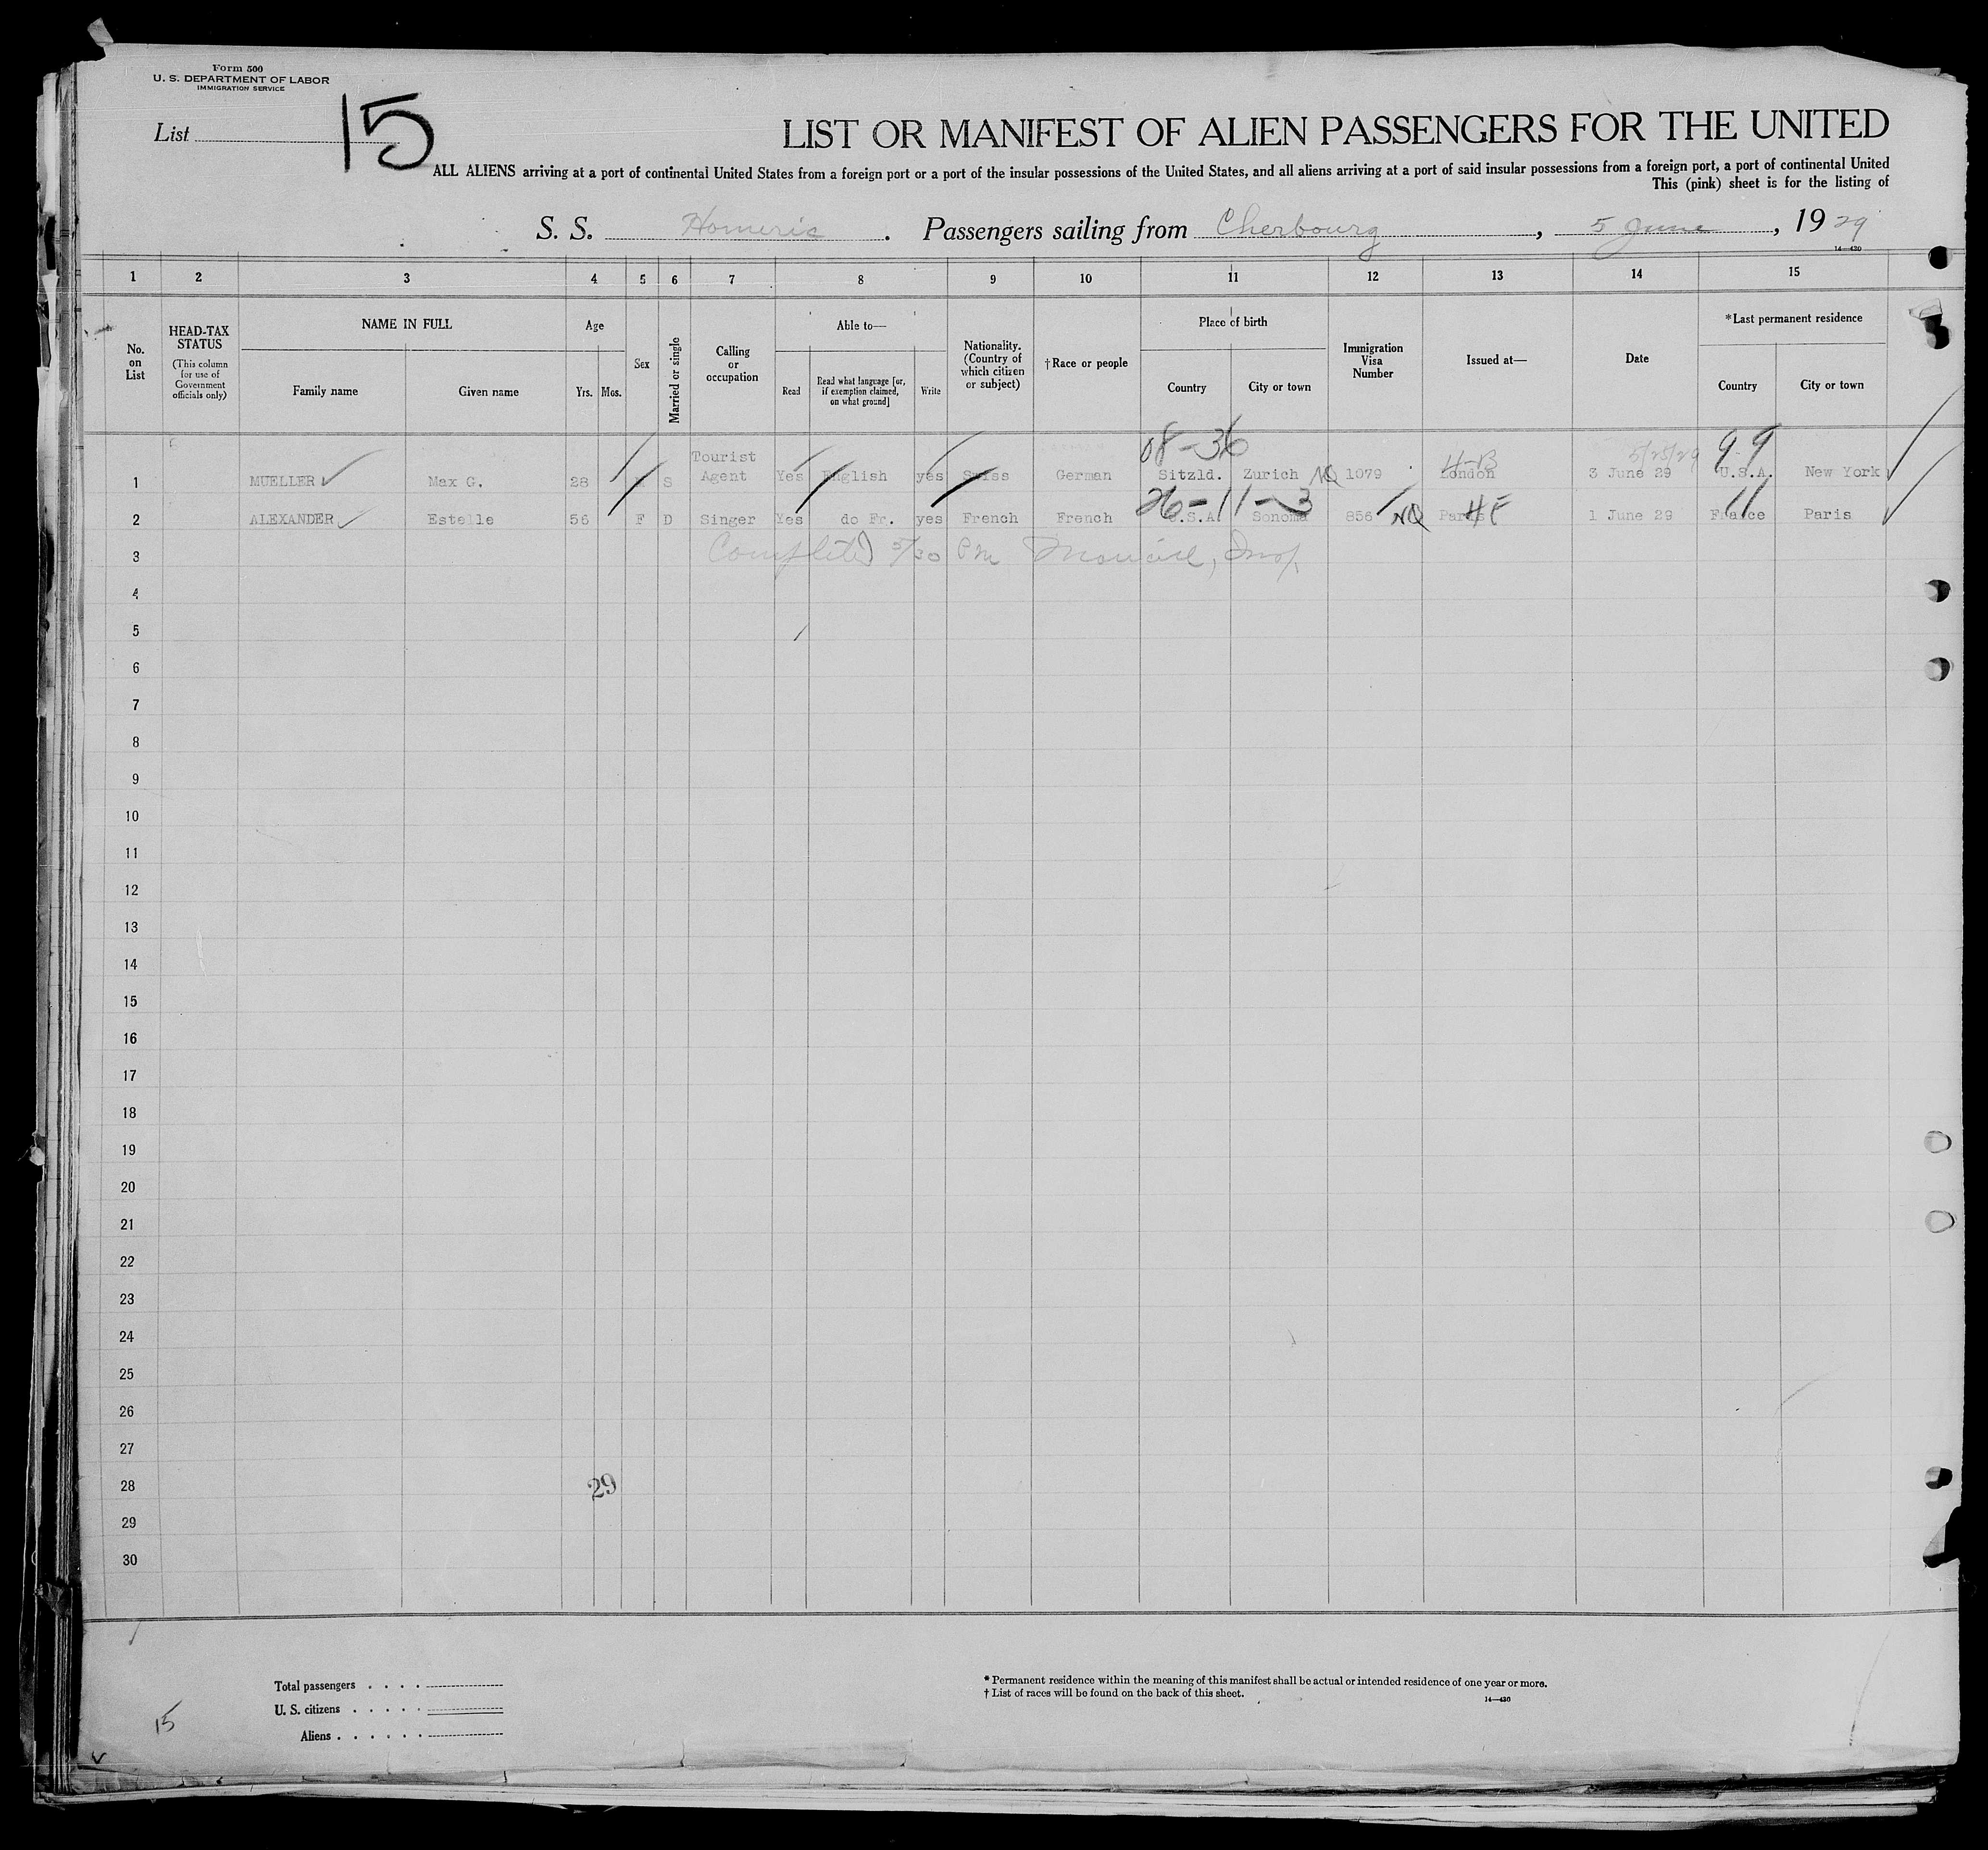 Form 500
U. S. DEPARTMENT OF LABOR
IMMIGRATION SERVICE
List 15
LIST OR MANIFEST OF ALIEN PASSENGERS FOR THE UNITED
ALL ALIENS arriving at a port of continental United States from a foreign port or a port of the insular possessions of the United States, and all aliens arriving at a port of said insular possessions from a foreign port, a port of continental United
This (pink) sheet is for the listing of
S. S. Homeric. Passengers sailing from Cherbourg, 5 June, 1929
14—430
1 2 3 4 5 6 7 8 9 10 11 12 13 14 15
No. on List
HEAD-TAX STATUS
(This column for use of Government officials only)
NAME IN FULL
Family name Given name
Age
Yrs. Mos.
Sex
Married or single
Calling or occupation
Able to—
Read
Read what language [or, if exemption claimed, on what ground]
Write
Nationality. (Country of which citizen or subject)
†Race or people
Place of birth
Country City or town
Immigration Visa Number
Issued at—
Date
*Last permanent residence
Country City or town
08-36 5/25/29 99
1 MUELLER Max G. 28 S Tourist Agent Yes English yes Swiss German Sitzld. Zurich NQ 1079 London 3 June 29 U.S.A. New York
26-11-3 11
2 ALEXANDER Estelle 56 F D Singer Yes do Fr. yes French French U.S.A. Sonoma 856 NQ Paris 1 June 29 France Paris
3 Completed 5/30 PM
4
5
6
7
8
9
10
11
12
13
14
15
16
17
18
19
20
21
22
23
24
25
26
27
28 29
29
30
Total passengers . . . .
U. S. citizens . . . . .
Aliens . . . . . .
15
* Permanent residence within the meaning of this manifest shall be actual or intended residence of one year or more.
† List of races will be found on the back of this sheet.
14—430